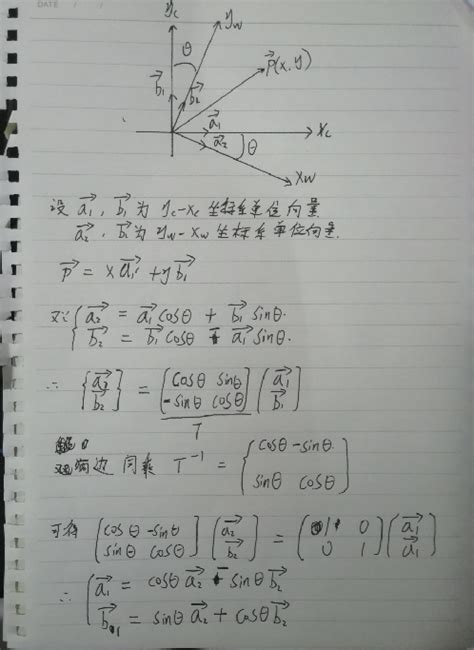 DATE / /
y_c y_w
θ
P⃗(x,y)
b₁⃗ b₂⃗
a₁⃗ x_c
a₂⃗ θ
x_w
设 a₁⃗, b₁⃗ 为 y_c-x_c 坐标系单位向量
a₂⃗, b⃗ 为 y_w-x_w 坐标系单位向量.
P⃗ = x a₁⃗ + y b₁⃗
a₂⃗ = a₁⃗ cosθ + b₁⃗ sinθ.
b₂⃗ = b₁⃗ cosθ - a₁⃗ sinθ.
∴ {a₂⃗ b₂⃗} = [cosθ sinθ -sinθ cosθ] (a₁⃗ b₁⃗)
T
两边同乘 T⁻¹ = {cosθ -sinθ. sinθ cosθ}
可得 [cosθ -sinθ sinθ cosθ] (a₂⃗ b₂⃗) = (1 0 0 1) (a₁⃗ a₁⃗)
∴ a₁⃗ = cosθ a₂⃗ - sinθ b₂⃗
b₁⃗ = sinθ a₂⃗ + cosθ b₂⃗